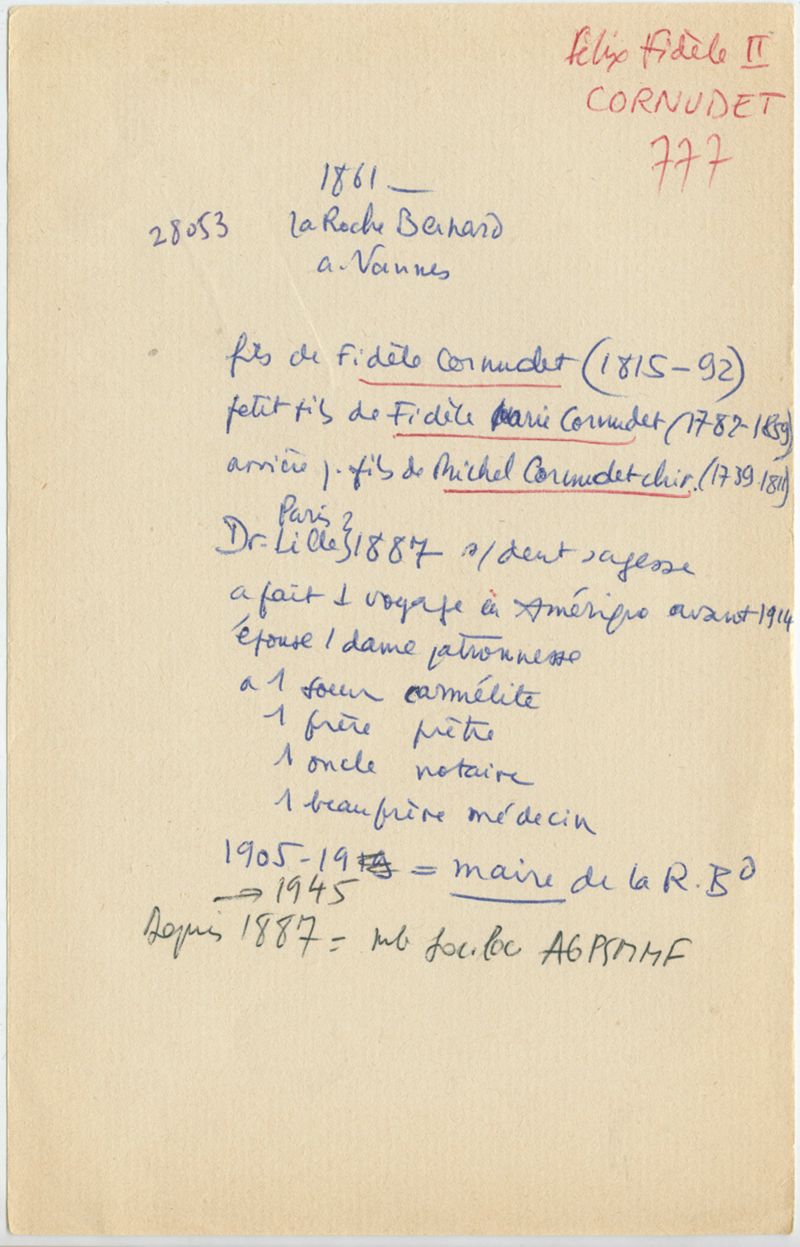 Félix Fidèle II
CORNUDET
777
1861 _
28053 La Roche Bernard
a. Vannes
fils de Fidèle Cornudet (1815-92)
petit fils de Fidèle Marie Cornudet (1782-1859)
arrière p. fils de Michel Cornudet chir. (1739-1811)
Paris ?
Dr. Lille } 1887 s/ dent sagesse
a fait 1 voyage en Amérique avant 1914
épouse 1 dame patronnesse
a 1 soeur carmélite
1 frère prêtre
1 oncle notaire
1 beau frère médecin
1905-19 = maire de la R. Bd
→ 1945
Depuis 1887 = mb soc. loc AGPSMMF